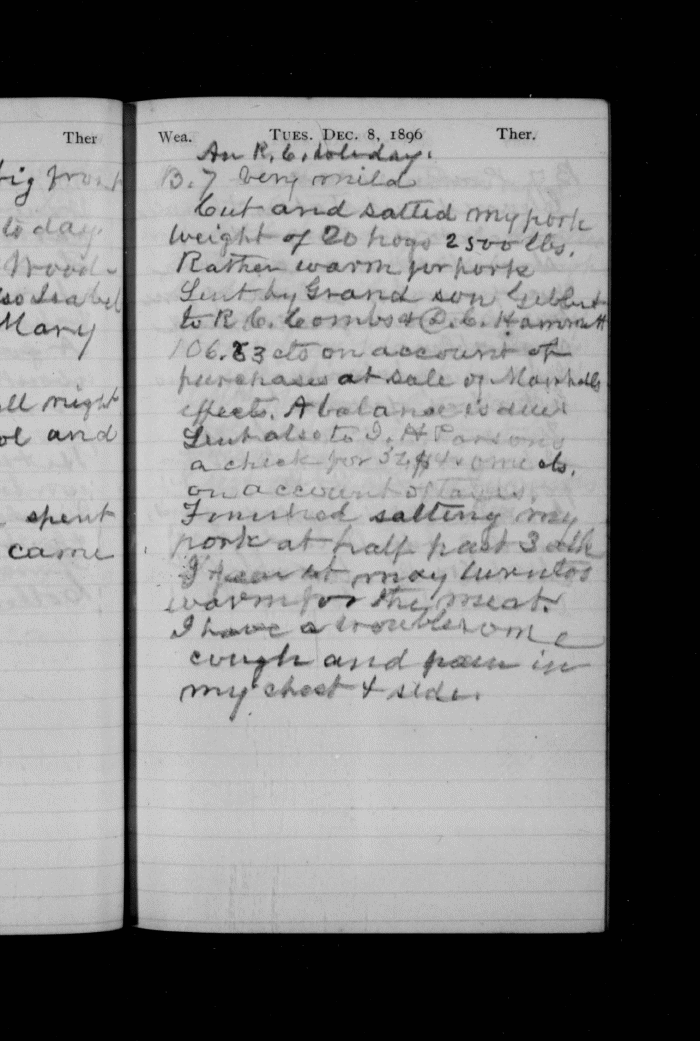 Ther
big frost
to day.
Wood-
also Isabel
Mary
all night
and
spent
came
Wea. TUES. DEC. 8, 1896 Ther.
An R. C. holiday.
B. 7 very mild
Cut and salted my pork
weight of 20 hogs 2500 lbs.
Rather warm for pork
Sent by Grand son Gilbert
to R C. Combs & D. C. Hammett
106.83 cts on account of
purchases at sale of Marshalls
effects. A balance is due
Sent also to J. H Parsons
a check for cts.
on account of taxes.
Finished salting my
pork at half past 3 clk
I fear it may turn too
warm for the meat.
I have a troublesome
cough and pain in
my chest & side.